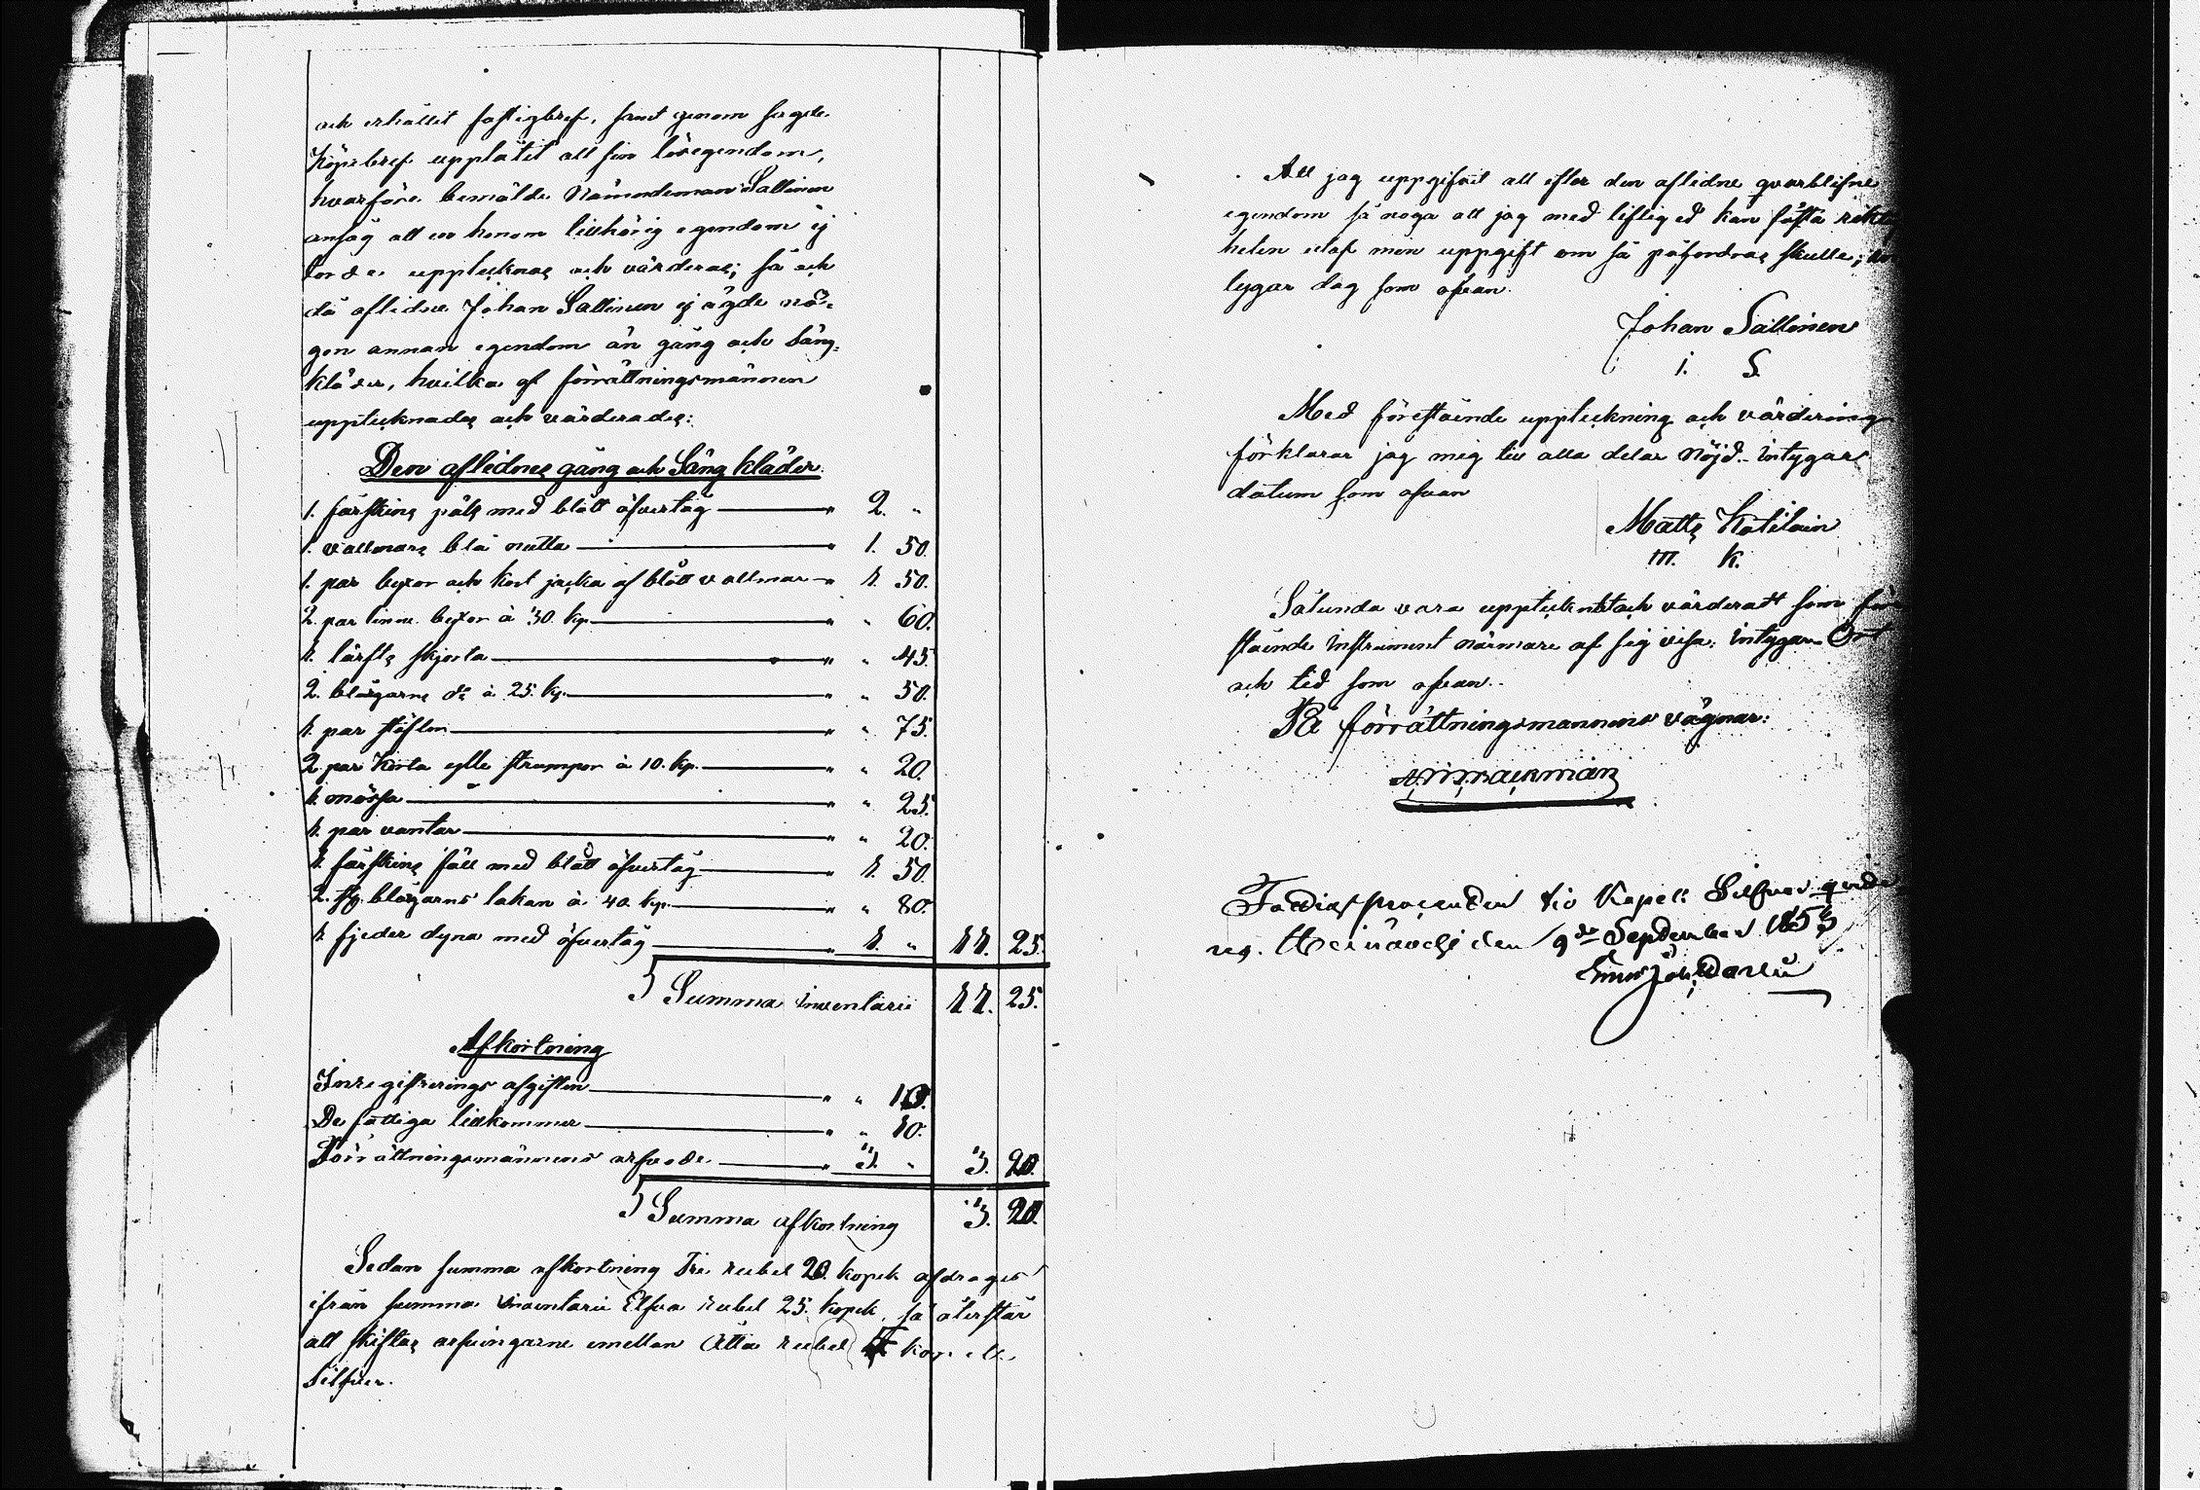 och erhållit fastigbref, samt genom sagde
Köpebref upplåtit all sin lösegendom,
hvarföre bemälde Nämndeman Sallinen
ansåg att en honom tillhörig egendom ej
borde upptecknas och värderas; så och
då aflidne Johan Sallinen ej ägde nå-
gon annan egendom än gång och säng-
kläder, hvilka af förrättningsmännen
upptecknades och värderades:
Den aflidnes gång och Säng kläder.
1. fårskins päls med blått öfvertåg " 2. "
1. vallmars blå mutta " 1. 50.
1. par byxor och kort jacka af blått vallmar " 1. 50.
2. par linne byxor à 30 kp. " " 60.
1. lärfts skjorta " " 45.
2. blågarns d:o à 25. kp. " " 50.
1. par stöflor " " 75.
2. par korta ylle strumpor à 10. kp. " " 20.
1. mössa " " 25.
1. par vantar " " 20.
1. fårskins fäll med blått öfvertåg " 1. 50.
2. st. blågarns lakan à 40 kp. " " 80.
1. fjeder dyna med öfvertåg " 1. " 11. 25.
Summa inventarii 11. 25.
Afkortning
Inregistrerings afgiften " " 10.
De fattiga tillkommer " " 10.
Förrättningsmännens arfvode " 3. " 3. 20.
Summa afkortning 3. 20.
Sedan summa afkortning Tre rubel 20. kopek afdrages
ifrån summa inventarii Elfva rubel 25. kopek, så återstår
att skiftas arfvingarne emellan Åtta rubel kopek
Silfver.
Att jag uppgifvit all efter den aflidne qvarblifne
egendom så noga att jag med liflig ed kan fästa riktig
heten utaf min uppgift om så påfordras skulle; in
tygar dag som ofvan.
Johan Sallinen
i. S.
Med förestående uppteckning och värdering
förklarar jag mig till alla delar nöjd. intygar
datum som ofvan
Matts Kotilain
m. k.
Sålunda vara upptecknat och värderadt som före
stående instrument närmare af sig visa: intygar. Ort
och tid som ofvan.
På förrättningsmannens vägnar:
Fattigprocenten tio Kopek Silfver qvitte
ras. Heinävesi den 9de September 185